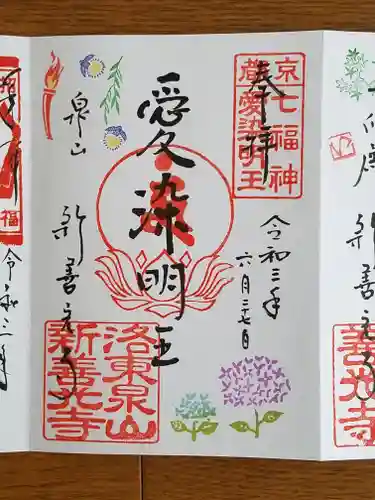 京七福神
蔵愛染明王
奉拝
令和三年
六月二十七日
愛染明王
泉山
新善光寺
洛東泉山
新善光寺
新善光寺
善光寺
福
令和三年